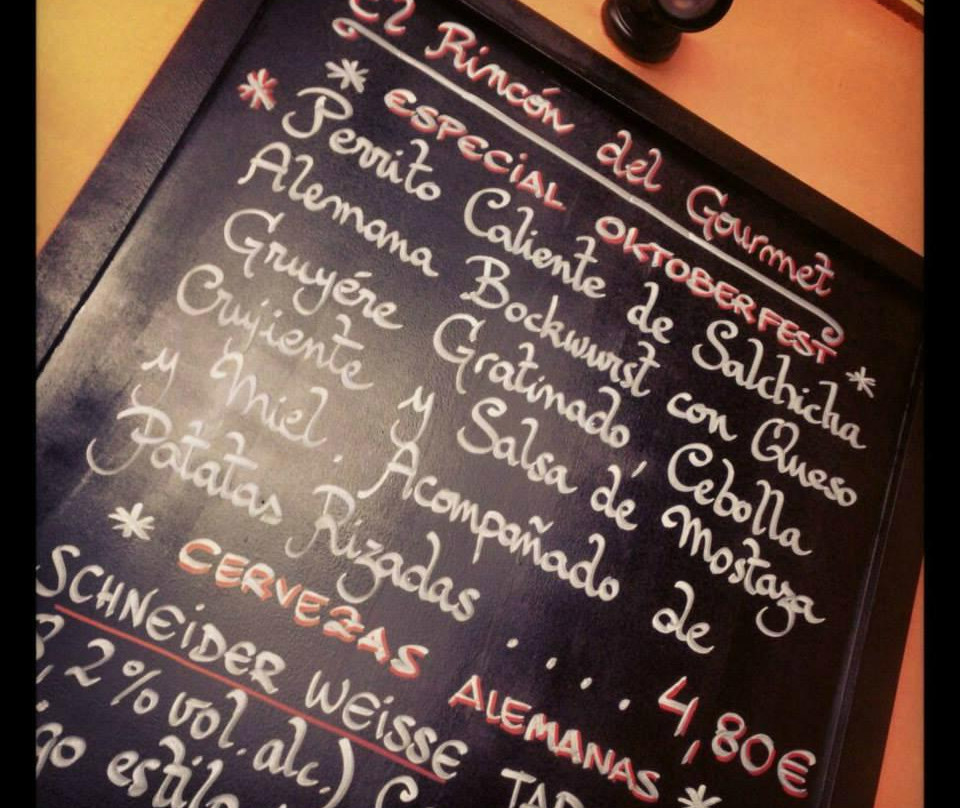 El Rincón del Gourmet
* ESPECIAL OKTOBERFEST *
* Perrito Caliente de Salchicha
Alemana Bockwurst con Queso
Gruyére Gratinado, Cebolla
Crujiente y Salsa de Mostaza
y Miel. Acompañado de
Patatas Rizadas .... 4,80€
* CERVEZAS ALEMANAS *
SCHNEIDER WEISSE TAP
8,2% vol. alc.)
estilo